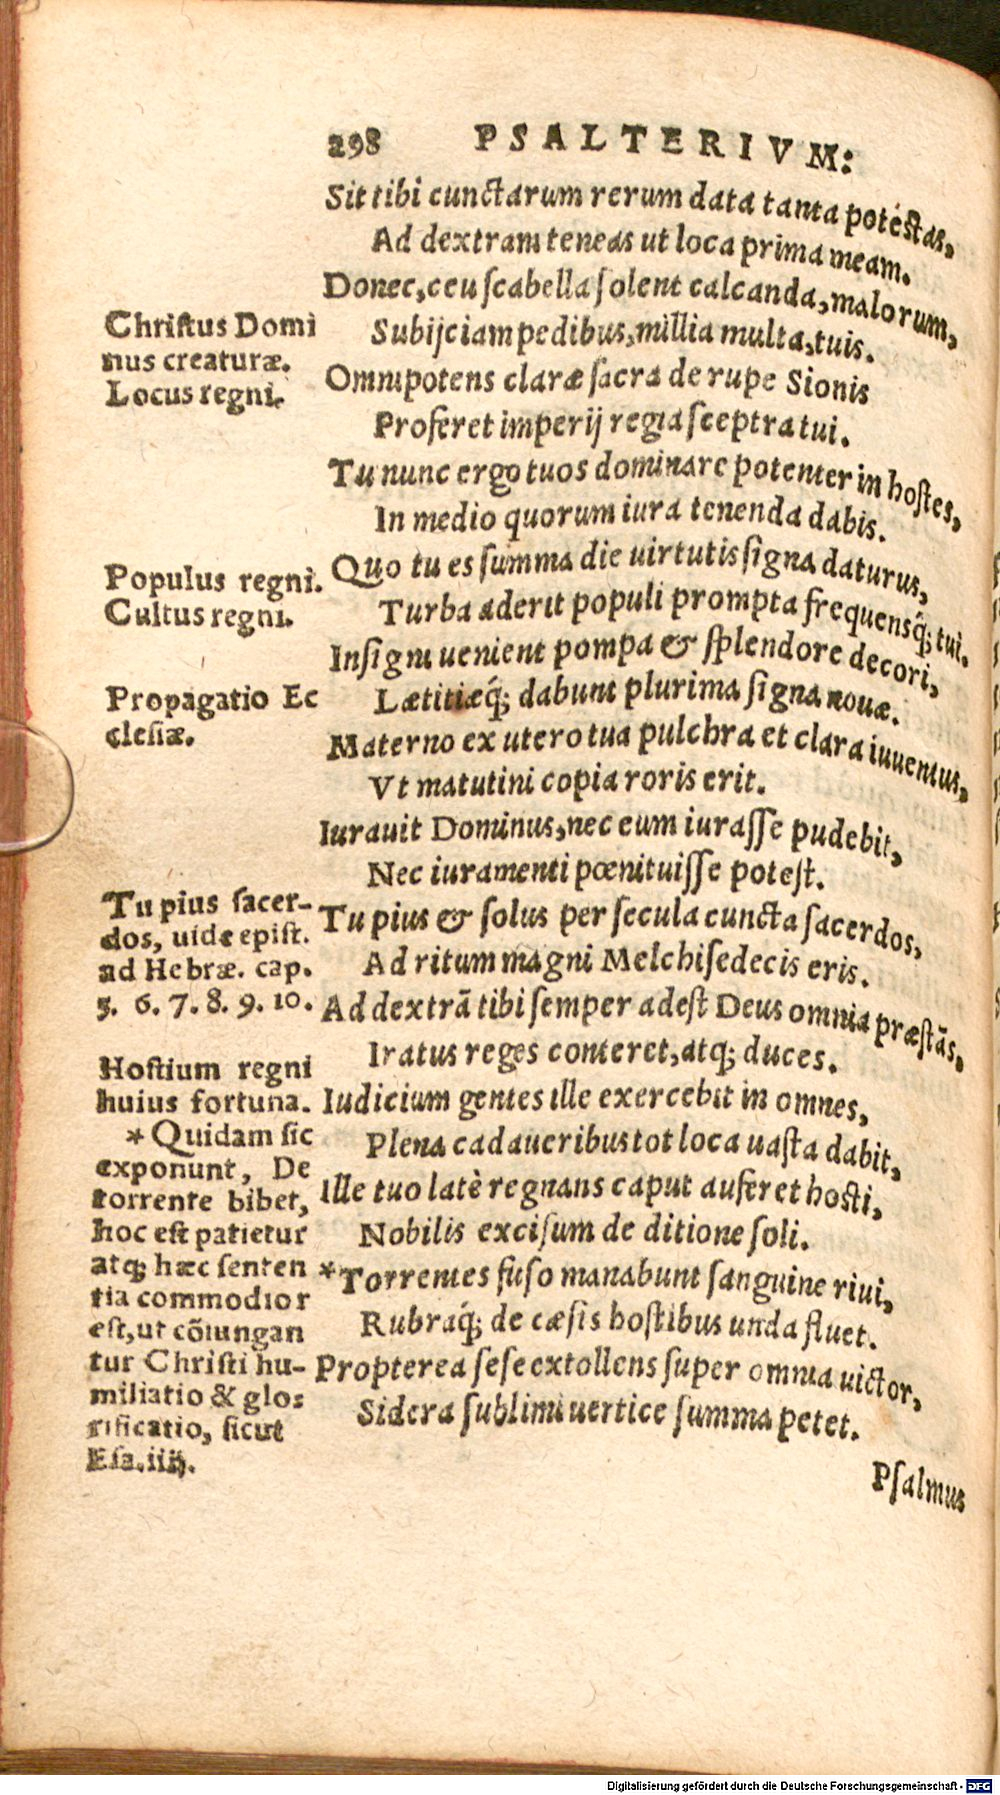 298 PSALTERIVM:
Sit tibi cunctarum rerum data tanta potestas,
Ad dextram teneas ut loca prima meam.
Donec, ceu scabella solent calcanda, malorum,
Subijciam pedibus, millia multa, tuis.
Omnipotens claræ sacra de rupe Sionis
Proferet imperij regia sceptra tui.
Tu nunc ergo tuos dominare potenter in hostes,
In medio quorum iura tenenda dabis.
Quo tu es summa die uirtutis signa daturus,
Turba aderit populi prompta frequensq́; tui.
Insigni uenient pompa & splendore decori,
Lætitiæq́; dabunt plurima signa nouæ.
Materno ex utero tua pulchra et clara iuuentus,
Vt matutini copia roris erit.
Iurauit Dominus, nec eum iurasse pudebit,
Nec iuramenti pœnituisse potest.
Tu pius & solus per secula cuncta sacerdos,
Ad ritum magni Melchisedecis eris.
Ad dextrā tibi semper adest Deus omnia præstās,
Iratus reges conteret, atq; duces.
Iudicium gentes ille exercebit in omnes,
Plena cadaueribus tot loca uasta dabit,
Ille tuo latè regnans caput auferet hosti,
Nobilis excisum de ditione soli.
*Torrentes fuso manabunt sanguine riui,
Rubraq́; de cæsis hostibus unda fluet.
Propterea sese extollens super omnia uictor,
Sidera sublimi uertice summa petet.
Psalmus
Christus Domi
nus creaturæ.
Locus regni.
Populus regni.
Cultus regni.
Propagatio Ec
clesiæ.
Tu pius sacer-
dos, uide epist.
ad Hebræ. cap.
5. 6. 7. 8. 9. 10.
Hostium regni
huius fortuna.
* Quidam sic
exponunt, De
torrente bibet,
hoc est patietur
atq; hæc senten
tia commodior
est, ut cōiungan
tur Christi hu-
miliatio & glo:
rificatio, sicut
Esa. iiij.
Digitalisierung gefördert durch die Deutsche Forschungsgemeinschaft - DFG